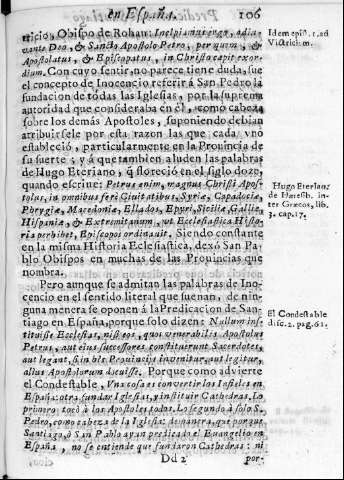 en España. 106
tricio, Obispo de Rohan: Incipiamus ergo, adiu-
vante Deo, & Sancto Apostolo Petro, per quem, &
Apostolatus, & Episcopatus, in Christo cœpit exor-
dium. Con cuyo sentir, no parece tiene duda, fue
el concepto de Inocencio referir à San Pedro la
fundacion de todas las Iglesias, por la suprema
autoridad que consideraba en èl, como cabeza
sobre los demás Apostoles, suponiendo debian
atribuirsele por esta razon las que cada vno
estableciò, particularmente en la Prouincia de
su suerte; y à que tambien aluden las palabras
de Hugo Eteriano, q̃ floreciò en el siglo doze,
quando escriue: Petrus enim, magnus Christi Apos-
tolus, in omnibus ferè Ciuitatibus, Syriæ, Capadociæ,
Phrygiæ, Macedoniæ, Ellados, Epyri, Siciliæ, Galliæ,
Hispaniæ, & Extremitanum, vt Ecclesiastica Histo-
ria perhibet, Episcopos ordinauit. Siendo constante
en la misma Historia Eclesiastica, dexò San Pa-
blo Obispos en muchas de las Prouincias que
nombra.
Pero aunque se admitan las palabras de Ino-
cencio en el sentido literal que suenan, de nin-
guna menera se oponen à la Predicacion de San-
tiago en España, porque solo dizen: Nullum ins-
tituisse Ecclesias, nisi eos, quos venerabilis Apostolus
Petrus, aut eius successores constituerunt Sacerdotes,
aut legant, si in his Prouincijs inuenitur, aut legitur,
alius Apostolorum docuisse. Porque como advierte
el Condestable, Vna cosa es convertir los Infieles en
España: otra fundar Iglesias, y instituir Cathedras. Lo
primero tocò à los Apostoles todos. Lo segundo à solo S.
Pedro, como cabeza de la Iglesia: de manera, que porque
Santiago, ò San Pablo ayan predicado el Euangelio en
España, no se entiende que fundaron Cathedras: ni
Dd 2 por-
Idem epist. 1. ad
Victricium.
Hugo Eterianus
de Hæresib. in-
ter Græcos, lib.
3. cap. 17.
El Condestable
disc. 2. pag. 61.